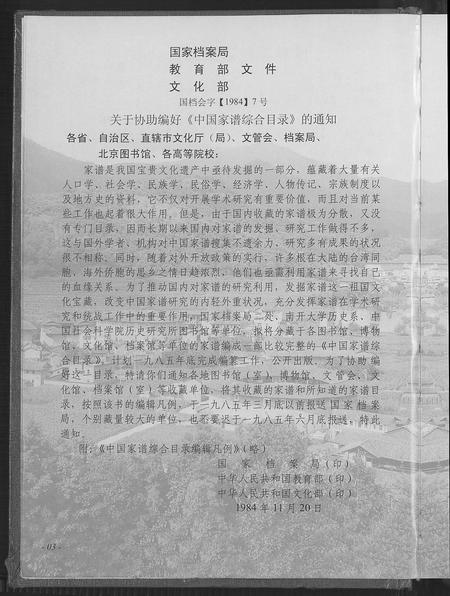 国家档案局
教育部文件
文化部
国档会字【1984】7号
关于协助编好《中国家谱综合目录》的通知
各省、自治区、直辖市文化厅（局）、文管会、档案局、
北京图书馆、各高等院校：
家谱是我国宝贵文化遗产中亟待发掘的一部分，蕴藏着大量有关
人口学、社会学、民族学、民俗学、经济学、人物传记、宗族制度以
及地方史的资料，它不仅对开展学术研究有重要价值，而且对当前某
些工作也起着很大作用。但是，由于国内收藏的家谱极为分散，又没
有专门目录，因而长期以来国内对家谱的发掘、研究工作做得不多，
这与国外学者、机构对中国家谱搜集不遗余力，研究多有成果的状况
很不相称。同时，随着对外开放政策的实行，许多根在大陆的台湾同
胞，海外侨胞的思乡之情日趋浓烈，他们也亟需利用家谱来寻找自己
的血缘关系。为了推动国内对家谱的研究利用，发掘家谱这一祖国文
化宝藏，改变中国家谱研究的内轻外重状况，充分发挥家谱在学术研
究和统战工作中的重要作用，国家档案局二处、南开大学历史系、中
国社会科学院历史研究所图书馆等单位，拟将分藏于各图书馆、博物
馆、文化馆、档案馆等单位的家谱编成一部比较完整的《中国家谱综
合目录》，计划一九八五年底完成编纂工作，公开出版，为了协助编
好这一目录，特请你们通知各地图书馆（室），博物馆、文管会、文
化馆、档案馆（室）等收藏单位，将其收藏的家谱和所知道的家谱目
录，按照该书的编辑凡例，于一九八五年三月底以前报送国家档案
局，个别藏量较大的单位，也不要迟于一九八五年六月底报送，特此
通知。
附：《中国家谱综合目录编辑凡例》（略）
国家档案局（印）
中华人民共和国教育部（印）
中华人民共和国文化部（印）
1984年11月20日
- 03 -